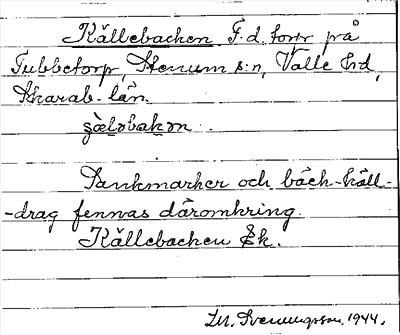 Källebacken F.d. torp på
Tubbetorp, Stenum s:n, Valle hd,
Skarab. län.
Sankmarker och bäck-käll-
-drag fennas däromkring.
Källebacken Ek.
M. Svenungsson 1944.